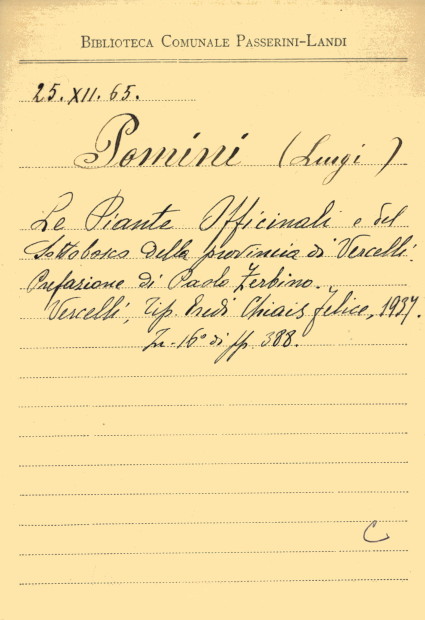 BIBLIOTECA COMUNALE PASSERINI-LANDI
25.XII.65.
Pomini (Luigi)
Le Piante Officinali e del
Sottobosco della provincia di Vercelli.
Prefazione di Paolo Zerbino.
Vercelli, Tip. Eredi Chiais Felice, 1937.
In-16° di pp. 388.
C